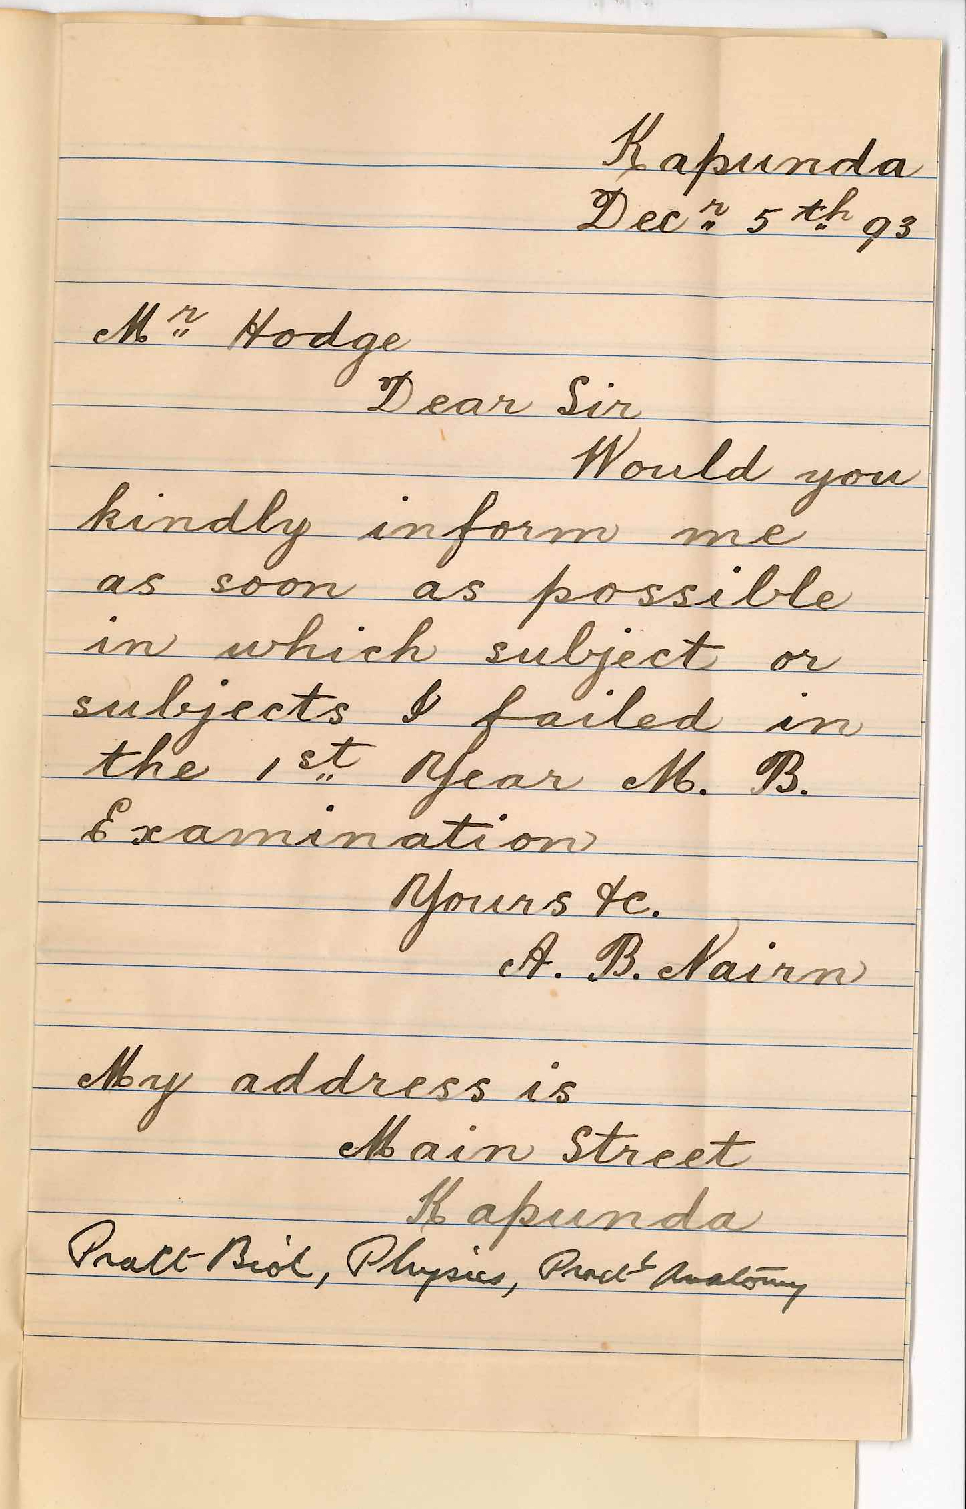 Kapunda
Decr 5th 93
Mr Hodge
Dear Sir
Would you
kindly inform me
as soon as possible
in which subject or
subjects I failed in
the 1st Year M. B.
Examination
Yours &c.
A. B. Nairn
My address is
Main Street
Kapunda
Pract Biol, Physics, Practl Anatomy